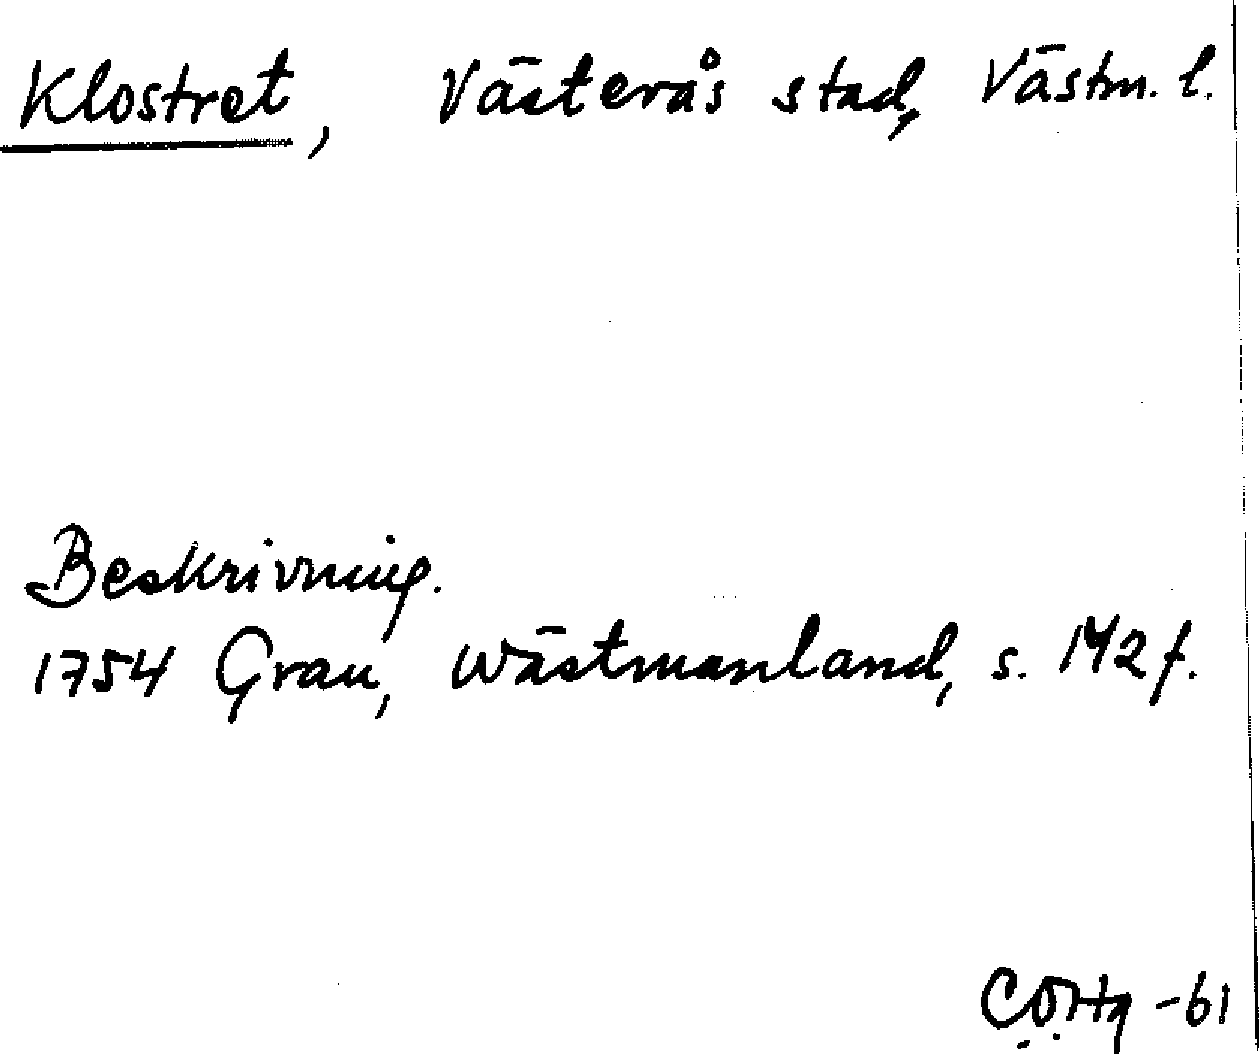 Klostret, Västerås stad, Västm. l.
Beskrivning.
1754 Grau, Wästmanland, s. 142 f.
-61